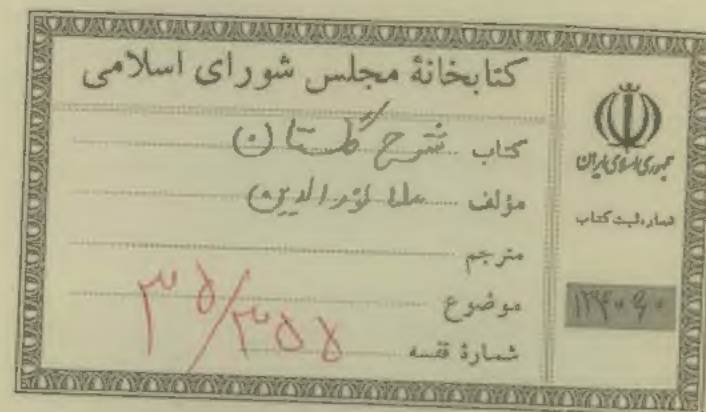 کتابخانهٔ مجلس شورای اسلامی
کتاب شرح گلستان
مؤلف ملا نورالدین
مترجم
موضوع
شمارهٔ قفسه
۳۵/۳۵۵
جمهوری اسلامی ایران
شماره ثبت کتاب